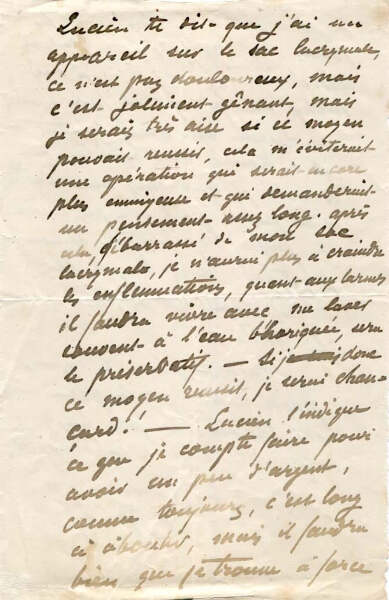 Lucien te dit que j'ai un
appareil sur le sac lacrymale,
ce n'est pas douloureux, mais
c'est joliment gênant, mais
je serais très aise si ce moyen
pouvait reussir, cela m'éviterait
une opération qui serait encore
plus ennuyeuse et qui demanderait
un pensement assez long. après
cela, débarrassé de mon sac
lacrymale, je n'aurai plus à craindre
les enflammations, quant aux larmes
il faudra vivre avec
souvent à l'eau bhoriquée, sera
le préservatif. — Si je donc
ce moyen reussit, je serai chan-
card! — Lucien t'indique
ce que je compte faire pour
avoir un peu d'argent,
comme toujours, c'est long
à aboutir, mais il faudra
bien que je trouve à force